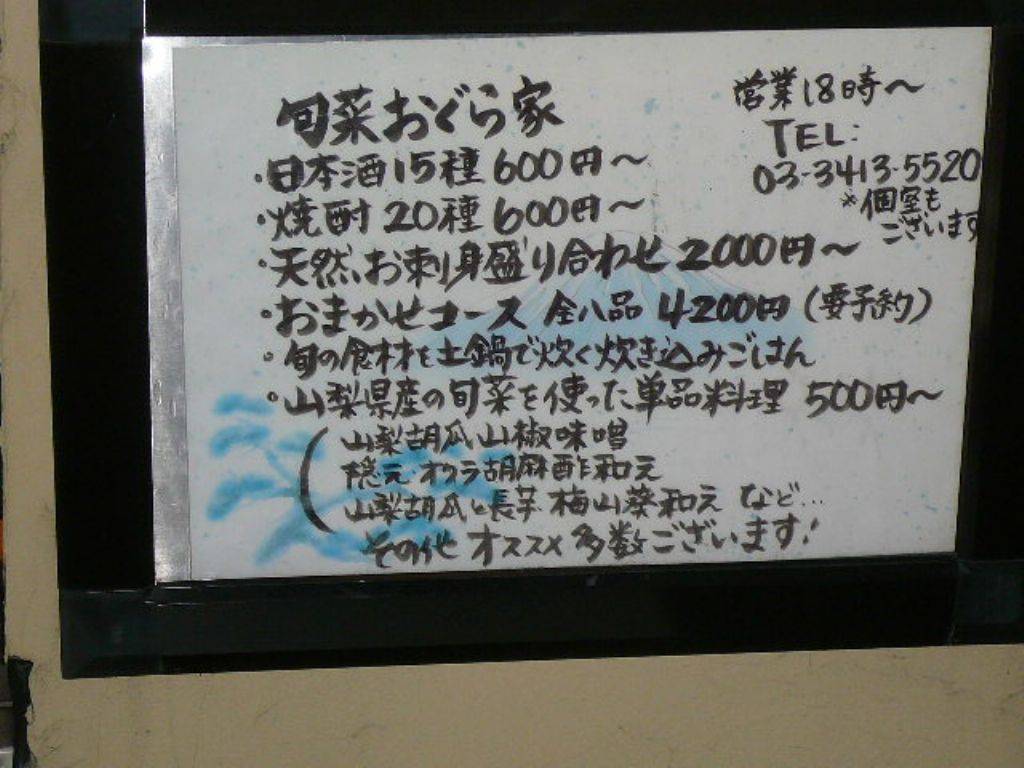 旬菜おぐら家
・日本酒15種600円～
・焼酎20種600円～
・天然お刺身盛り合わせ2000円～
・おまかせコース 全八品 4200円(要予約)
・旬の食材を土鍋で炊く炊き込みごはん
・山梨県産の旬菜を使った単品料理 500円～
(山梨胡瓜山椒味噌
隠元・オクラ胡麻酢和え
山梨胡瓜と長芋 梅山葵和え など…
その他オススメ多数ございます!
営業18時～
TEL:
03-3413-5520
※個室も
ございます